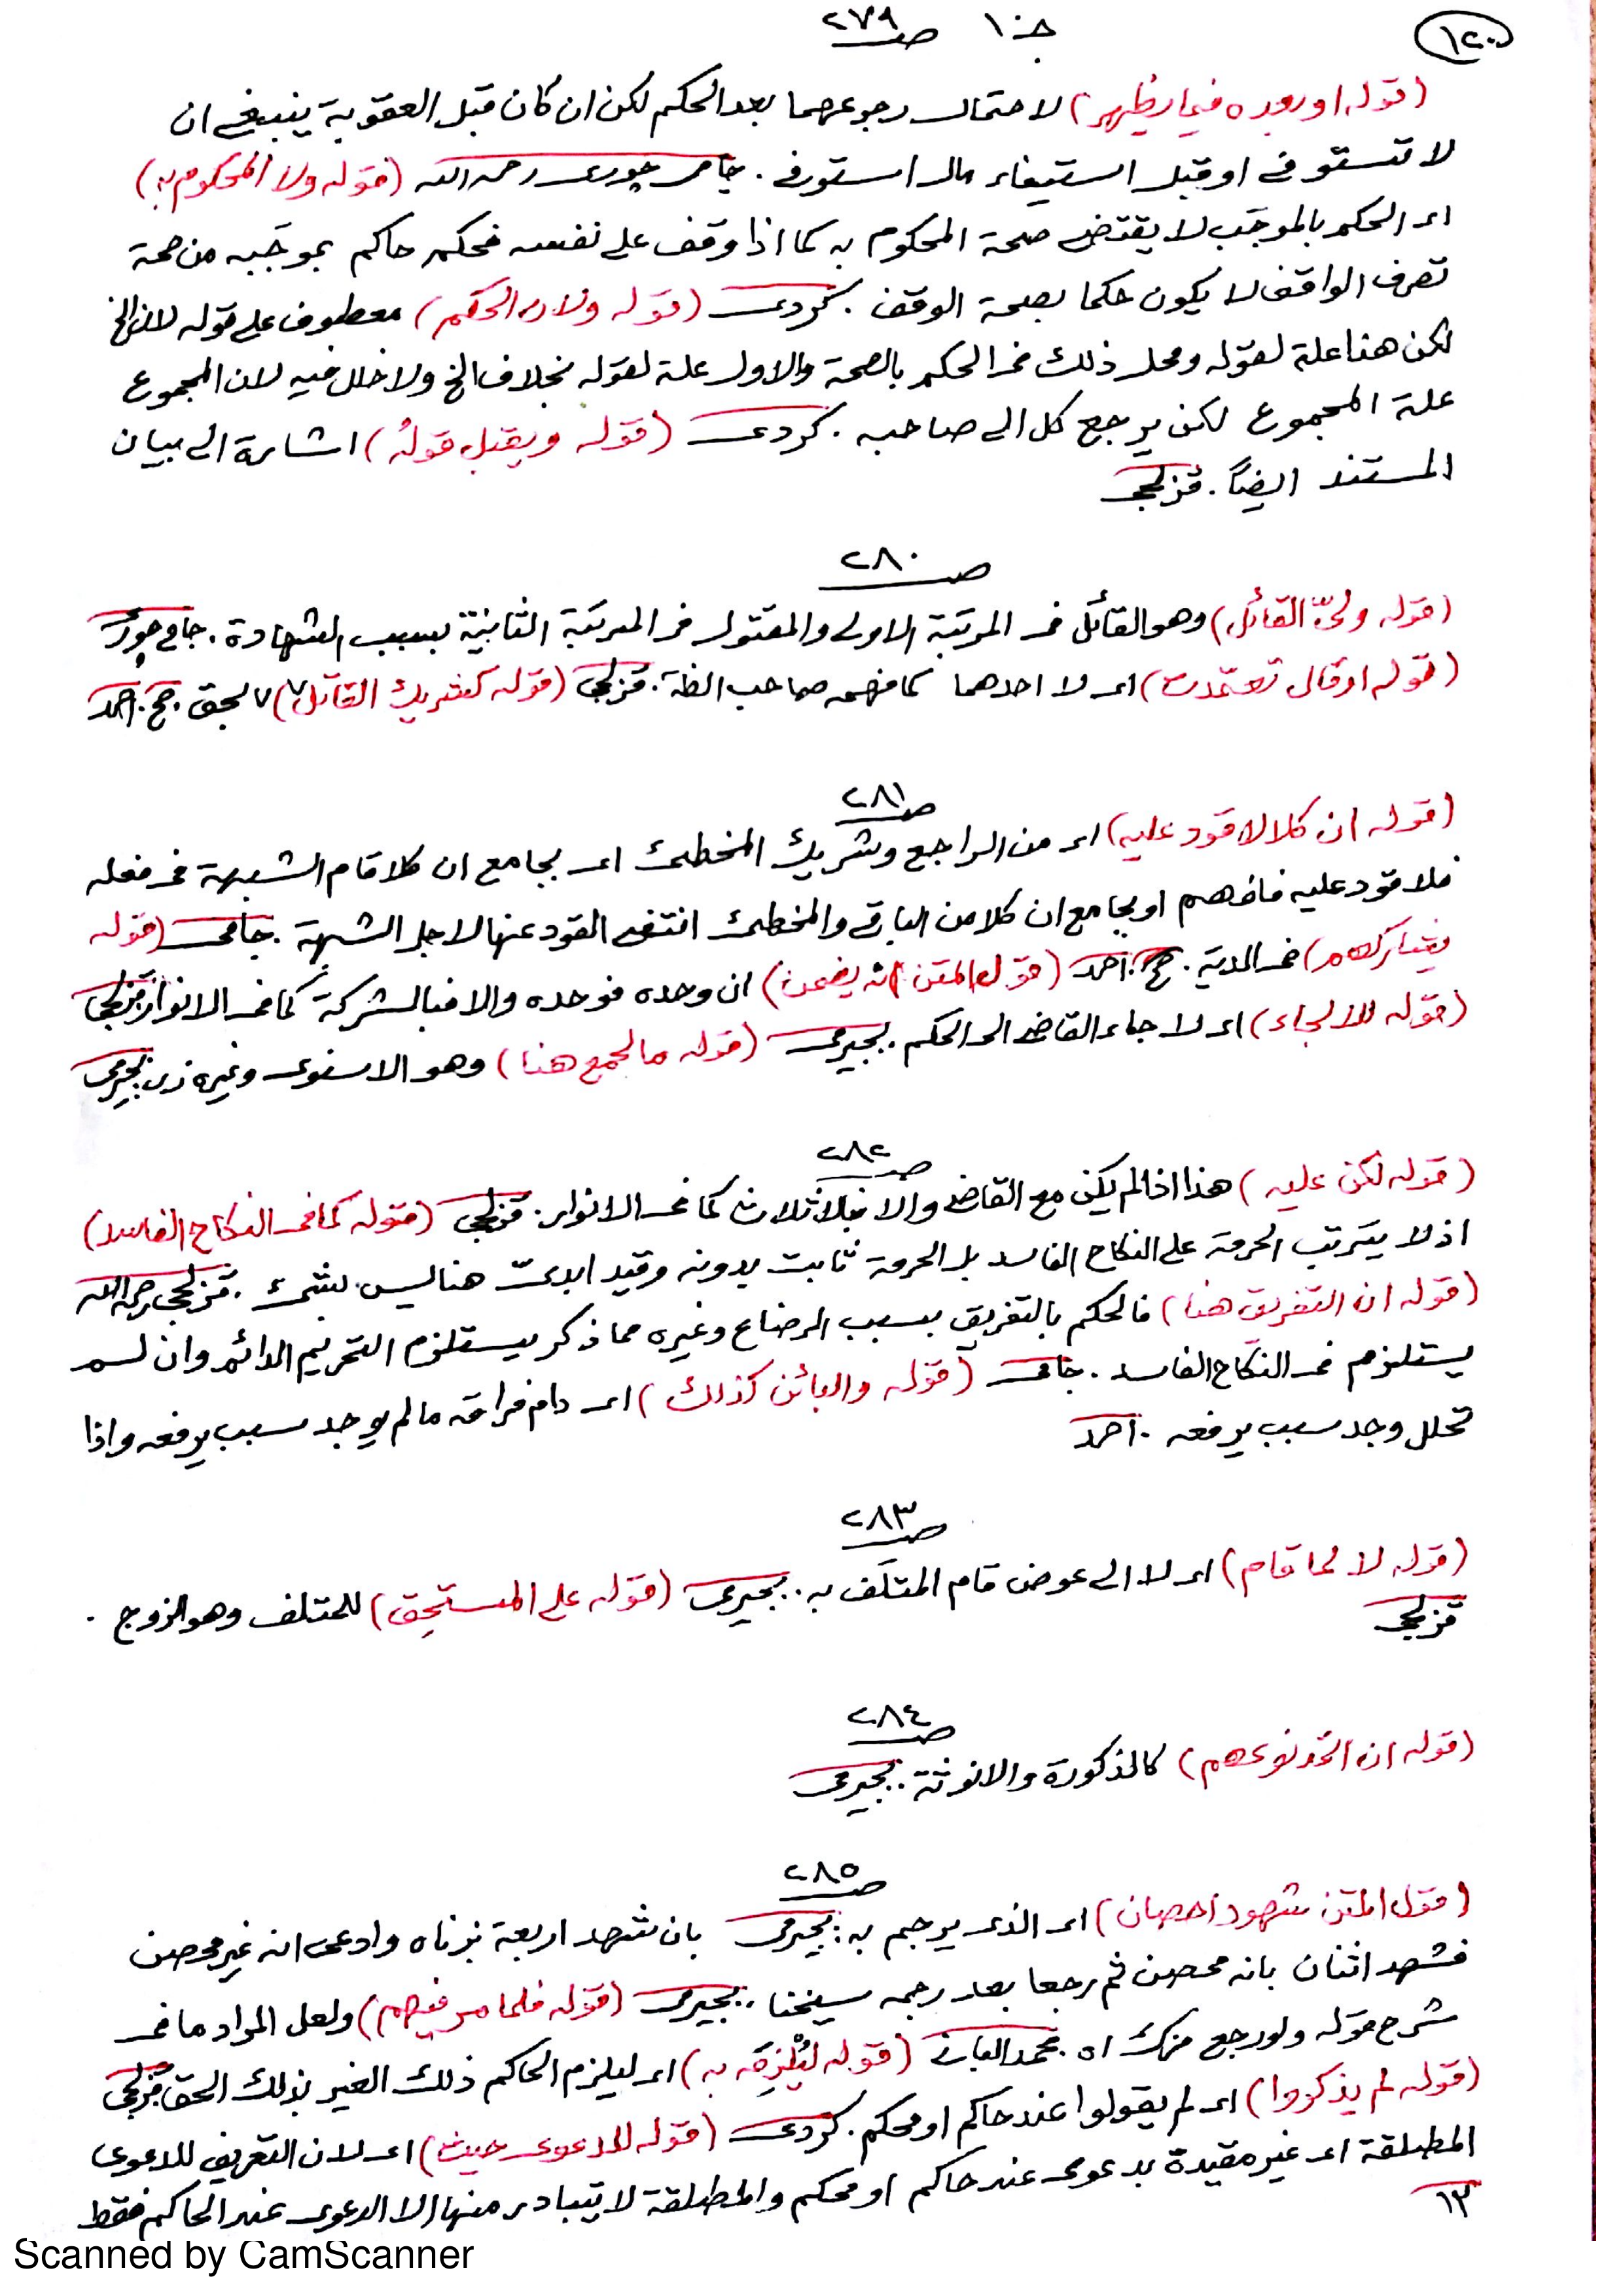 ١٢٠
جـ ١٠ صـ ٢٧٩
(قوله او بعده فيما يظهر) لاحتمال رجوعهما بعد الحكم لكن ان كان قبل العقوبة ينبغى ان
لا تستوفى او قبل استيفاء مال استوفى . جامى چورى رحمه الله (قوله ولا المحكوم به)
اى الحكم بالموجَب لا يقتضى صحة المحكوم به كما اذا وقف على نفسه فحكم حاكم بموجَبه من صحة
تصرف الواقف لا يكون حكما بصحة الوقف . كردى (قوله ولان الحكم) معطوف على قوله لان الخ
لكن هنا علة لقوله ومحل ذلك فى الحكم بالصحة والاول علة لقوله بخلاف الخ ولا خلل فيه لان المجموع
علة المجموع لكن يرجع كل الى صاحبه . كردى (قوله ويقبل قولهُ) اشارة الى بيان
المستند ايضاً . قزلجى
صـ ٢٨٠
(قوله ولىّ القاتل) وهو القاتل فى المرتبة الاولى والمقتول فى المرتبة الثانية بسبب الشهادة . جامى چورى
(قوله او قال تعمّدت) اى لا احدهما كما فهمه صاحب . قزلجى (قوله كشريك القاتل٧) ٧ لحق . ج . احمد
صـ ٢٨١
(قوله ان كلا لا قود عليه) اى من الراجع وشريك المخطئ اى بجامع ان كلا قام الشبهة فى فعله
فلا قود عليه فافهم او بجامع ان كلا من الباقى والمخطئ انتفى القود عنها لاجل الشبهة . جامى (قوله
يشاركهم) فى الدية . ج . احمد (قول المتن انه يضمن) ان وحده فوحده والا فبالشركة كما فى الانوار قزلجى
(قوله للالجاء) اى لاجاء القاضى الى الحكم . بجيرمى (قوله ما لجمع هنا) وهو الاسنوى وغيره زى بجيرمى
صـ ٢٨٢
(قوله لكن عليه) هذا اذا لم يكن مع القاضى والا فثلاث كما فى الانوار . قزلجى (قوله كما فى النكاح الفاسد)
اذ لا يترتب الحرمة على النكاح الفاسد بل الحرمة ثابت بدونه وقيد ابدىّ هنا ليس بشئ . قزلجى رحمه الله
(قوله ان التفريق هنا) فالحكم بالتفريق بسبب الرضاع وغيره مما ذكر يستلزم التحريم الدائم وان لم
يستلزم فى النكاح الفاسد . جامى (قوله والبائن كذلك) اى دام فراقه ما لم يوجد سبب يرفعه واذا
تحلل وجد سبب يرفعه . احمد
صـ ٢٨٣
(قوله لا لما قام) اى لا الى عوض قام المتلَف به . بجيرمى (قوله على المستحق) للمتلف وهو الزوج .
قزلجى
صـ ٢٨٤
(قوله ان اتحد نوعهم) كالذكورة والانوثة . بجيرمى
صـ ٢٨٥
(قول المتن شهود احصان) اى الذى يرجم به . بجيرمى بان شهد اربعة بزناه وادعى انه غير محصن
فشهد اثنان بانه محصن ثم رجعا بعد رجمه شيخنا . بجيرمى (قوله فلما مر فيهم) ولعل المراد ما فى
شرح قوله ولو رجع مزك اه . محمد (قوله ليُلْزِمَه به) اى ليلزم الحاكم ذلك الغير بذلك الحق قزلجى
(قوله لم يذكروا) اى لم يقولوا عند حاكم او محكم . كردى (قوله للدعوى حيث) اى لان التعريف للدعوى
المطلقة اى غير مقيدة بدعوى عند حاكم او محكم والمطلقة لا يتبادر منها الا الدعوى عند الحاكم فقط
١٣
Scanned by CamScanner